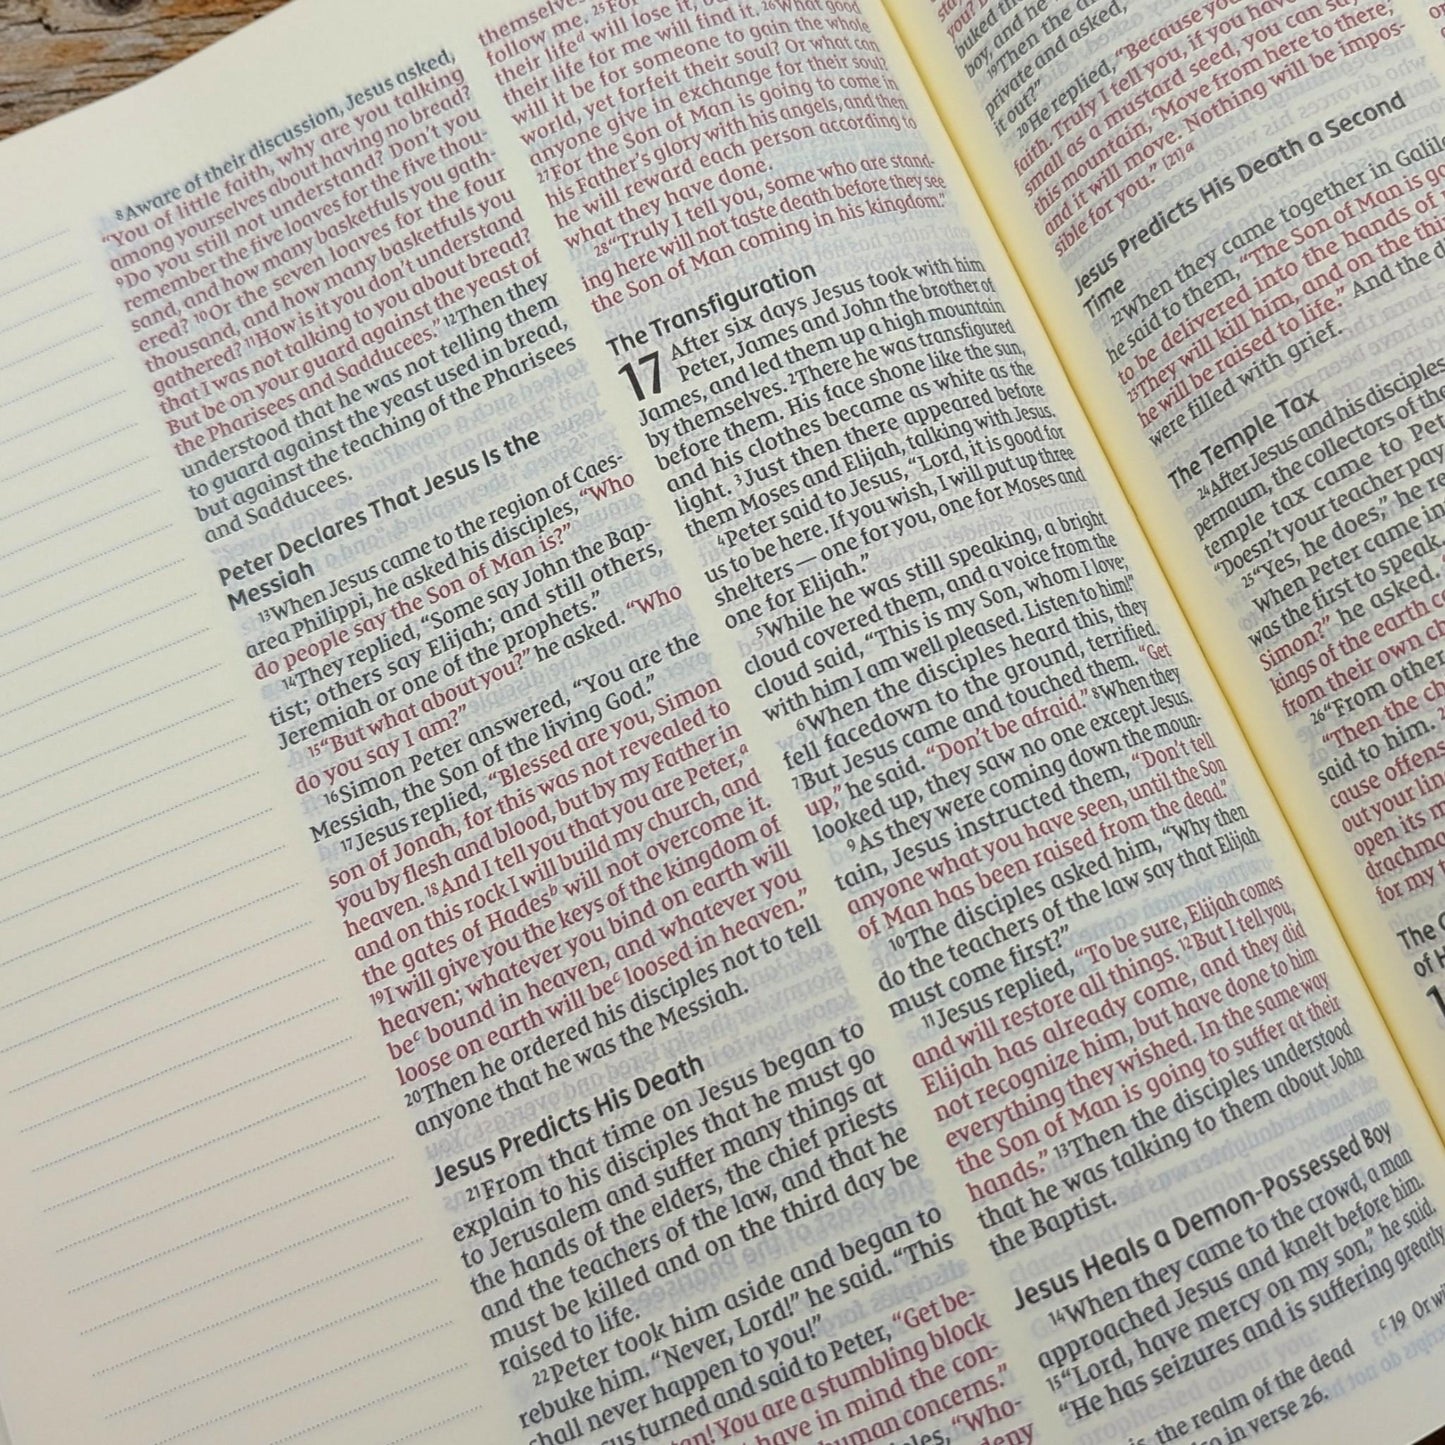 ⁸Aware of their discussion, Jesus asked,
“You of little faith, why are you talking
among yourselves about having no bread?
⁹Do you still not understand? Don’t you
remember the five loaves for the five thou-
sand, and how many basketfuls you gath-
ered? ¹⁰Or the seven loaves for the four
thousand, and how many basketfuls you
gathered? ¹¹How is it you don’t understand
that I was not talking to you about bread?
But be on your guard against the yeast of
the Pharisees and Sadducees.” ¹²Then they
understood that he was not telling them
to guard against the yeast used in bread,
but against the teaching of the Pharisees
and Sadducees.
Peter Declares That Jesus Is the
Messiah
¹³When Jesus came to the region of Caes-
area Philippi, he asked his disciples, “Who
do people say the Son of Man is?”
¹⁴They replied, “Some say John the Bap-
tist; others say Elijah; and still others,
Jeremiah or one of the prophets.”
¹⁵“But what about you?” he asked. “Who
do you say I am?”
¹⁶Simon Peter answered, “You are the
Messiah, the Son of the living God.”
¹⁷Jesus replied, “Blessed are you, Simon
son of Jonah, for this was not revealed to
you by flesh and blood, but by my Father in
heaven. ¹⁸And I tell you that you are Peter,ᵃ
and on this rock I will build my church, and
the gates of Hadesᵇ will not overcome it.
¹⁹I will give you the keys of the kingdom of
heaven; whatever you bind on earth will
beᶜ bound in heaven, and whatever you
loose on earth will beᶜ loosed in heaven.”
²⁰Then he ordered his disciples not to tell
anyone that he was the Messiah.
Jesus Predicts His Death
²¹From that time on Jesus began to
explain to his disciples that he must go
to Jerusalem and suffer many things at
the hands of the elders, the chief priests
and the teachers of the law, and that he
must be killed and on the third day be
raised to life.
²²Peter took him aside and began to
rebuke him. “Never, Lord!” he said. “This
shall never happen to you!”
turned and said to Peter, “Get be-
You are a stumbling block
have in mind the con-
human concerns.”
“Who-
deny
themselves
follow me. ²⁵For
their lifeᵈ will lose it, but
their life for me will find it. ²⁶What good
will it be for someone to gain the whole
world, yet forfeit their soul? Or what can
anyone give in exchange for their soul?
²⁷For the Son of Man is going to come in
his Father’s glory with his angels, and then
he will reward each person according to
what they have done.
²⁸“Truly I tell you, some who are stand-
ing here will not taste death before they see
the Son of Man coming in his kingdom.”
The Transfiguration
17 After six days Jesus took with him
Peter, James and John the brother of
James, and led them up a high mountain
by themselves. ²There he was transfigured
before them. His face shone like the sun,
and his clothes became as white as the
light. ³Just then there appeared before
them Moses and Elijah, talking with Jesus.
⁴Peter said to Jesus, “Lord, it is good for
us to be here. If you wish, I will put up three
shelters — one for you, one for Moses and
one for Elijah.”
⁵While he was still speaking, a bright
cloud covered them, and a voice from the
cloud said, “This is my Son, whom I love;
with him I am well pleased. Listen to him!”
⁶When the disciples heard this, they
fell facedown to the ground, terrified.
⁷But Jesus came and touched them. “Get
up,” he said. “Don’t be afraid.” ⁸When they
looked up, they saw no one except Jesus.
⁹As they were coming down the moun-
tain, Jesus instructed them, “Don’t tell
anyone what you have seen, until the Son
of Man has been raised from the dead.”
¹⁰The disciples asked him, “Why then
do the teachers of the law say that Elijah
must come first?”
¹¹Jesus replied, “To be sure, Elijah comes
and will restore all things. ¹²But I tell you,
Elijah has already come, and they did
not recognize him, but have done to him
everything they wished. In the same way
the Son of Man is going to suffer at their
hands.” ¹³Then the disciples understood
that he was talking to them about John
the Baptist.
Jesus Heals a Demon-Possessed Boy
¹⁴When they came to the crowd, a man
approached Jesus and knelt before him.
¹⁵“Lord, have mercy on my son,” he said.
“He has seizures and is suffering greatly
is, the realm of the dead
ᶜ 19 Or
in verse 26.
you?
buked the
boy, and he
¹⁹Then the
private and asked,
it out?”
²⁰He replied, “Because you
faith. Truly I tell you, if you have
small as a mustard seed, you can say
this mountain, ‘Move from here to there,’
and it will move. Nothing will be impos-
sible for you.” [21]ᵃ
Jesus Predicts His Death a Second
Time
²²When they came together in Galil
he said to them, “The Son of Man is go
to be delivered into the hands of
²³They will kill him, and on the thi
he will be raised to life.” And the d
were filled with grief.
The Temple Tax
²⁴After Jesus and his disciples
pernaum, the collectors of the
temple tax came to Pet
“Doesn’t your teacher pay
²⁵“Yes, he does,” he re
When Peter came in
was the first to speak.
Simon?” he asked.
kings of the earth c
from their own ch
²⁶“From other
“Then the ch
said to him.
cause offens
out your lin
open its m
drachma
for my
The G
of H